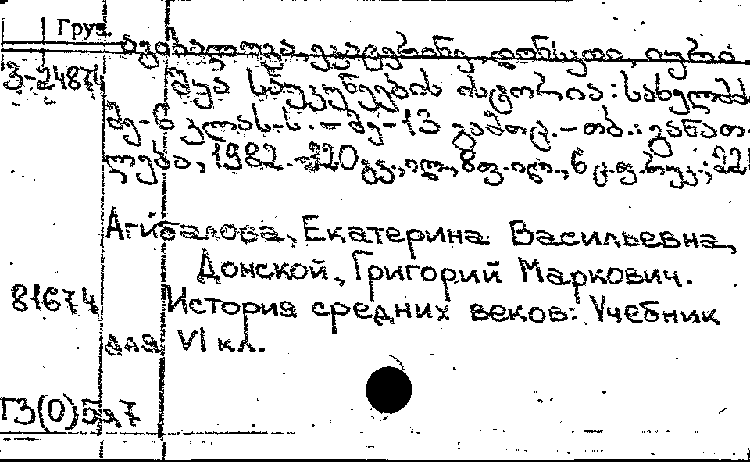 Груз.
აგიბალოვა ეკატერინე, დონსკოი, იური
3-24874 შუა საუკუნეების ისტორია: სახელმძ.
მე-6 კლას. ს. - მე-13 გამოც. - თბ.: განათ-
ლება, 1982. - 320 გვ., ილ., 8 ფ. ილ., 6 ც. ფ. რუკ.;
Агибалова, Екатерина Васильевна,
Донской, Григорий Маркович.
81674 История средних веков: Учебник
для VI кл.
Г3(0)5я7